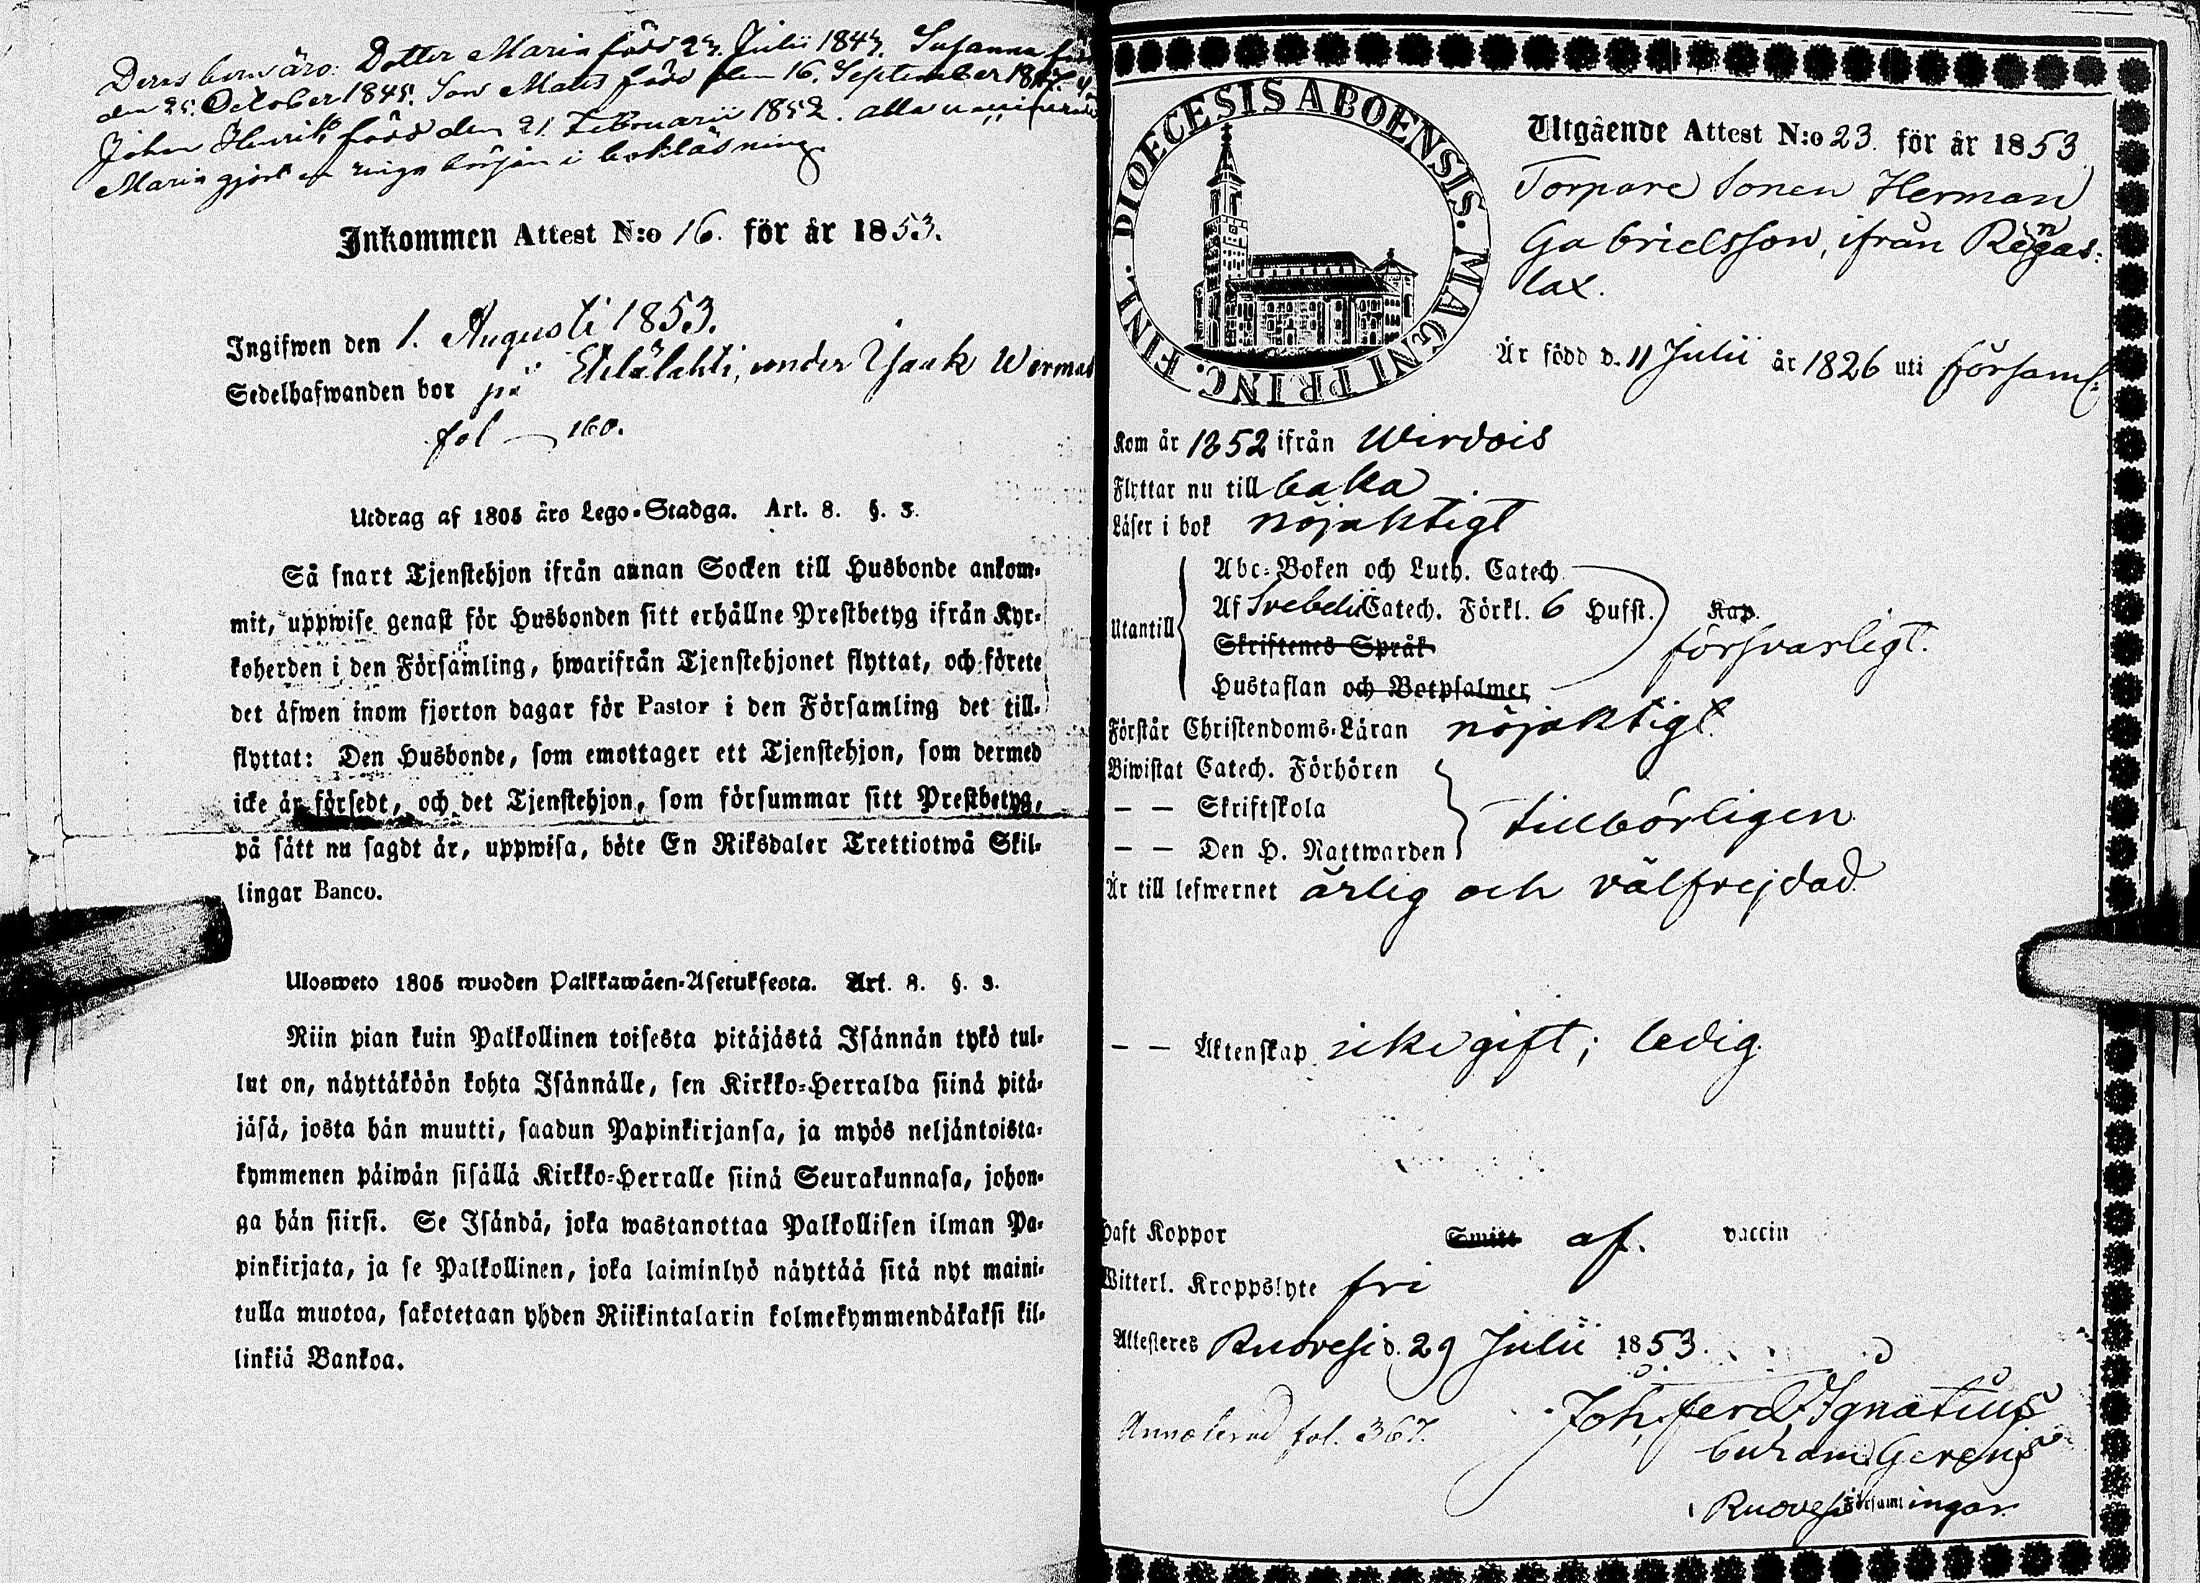 Deras barn äro: Dotter Maria född 23. Julii 1843. Susanna född
den 25. October 1845. Son Mats född den 16. September 1847.
Johan Henrik född den 21 Februarii 1852. alla vaccinerade
Maria gjort en ringa början i bokläsning.
Inkommen Attest N:o 16. för år 1853.
Ingifwen den 1. Augusti 1853.
Sedelhafwanden bor på Etelälahti, under Isaak Wermas
fol 160.
Utdrag af 1805 års Lego-Stadga. Art. 8. §. 3.
Så snart Tjenstehjon ifrån annan Socken till Husbonde ankom-
mit, uppwise genast för Husbonden sitt erhållne Prestbetyg ifrån Kyr-
koherden i den Församling, hwarifrån Tjenstehjonet flyttat, och förete
det äfwen inom fjorton dagar för Pastor i den Församling det till-
flyttat: Den Husbonde, som emottager ett Tjenstehjon, som dermed
icke är försedt, och det Tjenstehjon, som försummar sitt Prestbetyg,
på sätt nu sagdt är, uppwisa, böte En Riksdaler Trettiotwå Skil-
lingar Banco.
Ulosweto 1805 wuoden Palkkawäen-Asetuksesta. Art. 8. §. 3.
Niin pian kuin Palkollinen toisesta pitäjästä Isännän tykö tul-
lut on, näyttäköön kohta Isännälle, sen Kirkko-Herralda siinä pitä-
jäsä, josta hän muutti, saadun Papinkirjansa, ja myös neljäntoista-
kymmenen päiwän sisällä Kirkko-Herralle siinä Seurakunnasa, johon-
ga hän siirsi. Se Isändä, joka wastanottaa Palkollisen ilman Pa-
pinkirjata, ja se Palkollinen, joka laiminlyö näyttää sitä nyt maini-
tulla muotoa, sakotetaan yhden Riikintalarin kolmekymmendäkaksi kil-
linkiä Bankoa.
DIOECESIS ABOENSIS. MAGNI PRINC. FINL.
Utgående Attest N:o 23. för år 1853.
Torpare Sonen Herman
Gabrielsson, ifrån Rengas-
lax.
Är född d. 11 Julii år 1826 uti församl:
Kom år 1852 ifrån Wirdois
Flyttar nu till baka
Läser i bok nöjaktigt
Utantill
Abc-Boken och Luth. Catech.
Af Svebelii Catech. Förkl. 6 Hufst. Kap.
Skriftenes Språk
försvarligt.
Hustaflan och Botpsalmer
Förstår Christendoms-Läran nöjaktigt.
Biwistat Catech. Förhören
— — Skriftskola
tillbörligen
— — Den H. Nattwarden
Är till lefwernet ärlig och välfrejdad.
— — Äktenskap icke gift; ledig.
Haft Koppor Smitt af. vaccin
Witterl. Kroppslyte fri
Attesteres Ruovesi d. 29 Julii 1853.
Joh. Ferd. Ignatius
Annoterad fol. 367.
curam Gerens
Ruovesi Församlingar.